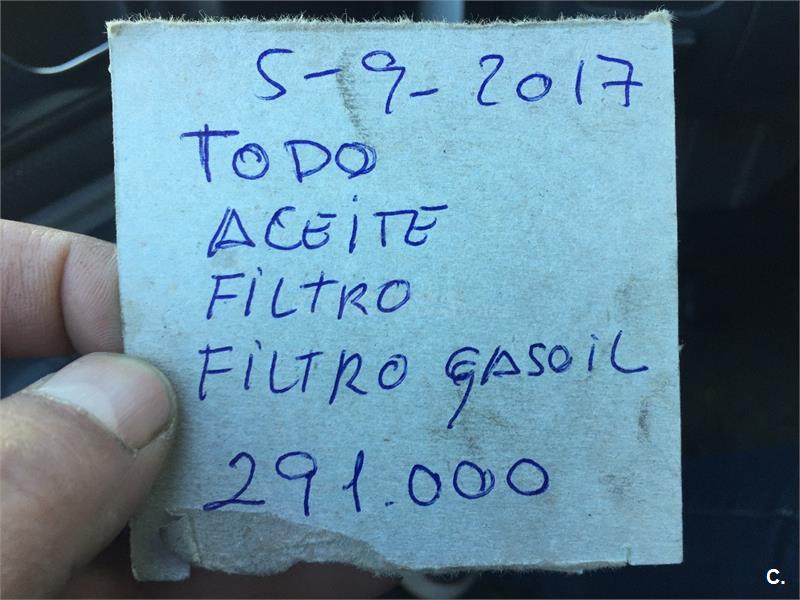 5-9-2017
TODO
ACEiTE
FiLTRO
FiLTRO GASOiL
291.000
C.